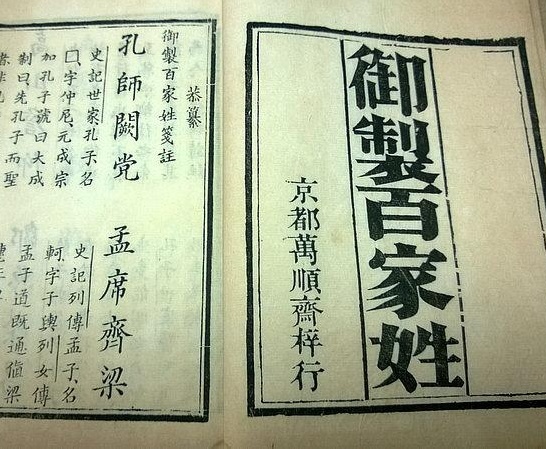 御製百家姓
京都萬順齋梓行
恭纂
御製百家姓箋註
孔師闕党
孟席齊梁
史記世家孔子名
囗字仲尼元成宗
加孔子號曰大成
制曰先孔子而聖
史記列傳孟子名
軻字子輿列女傳
孟子道既通値梁